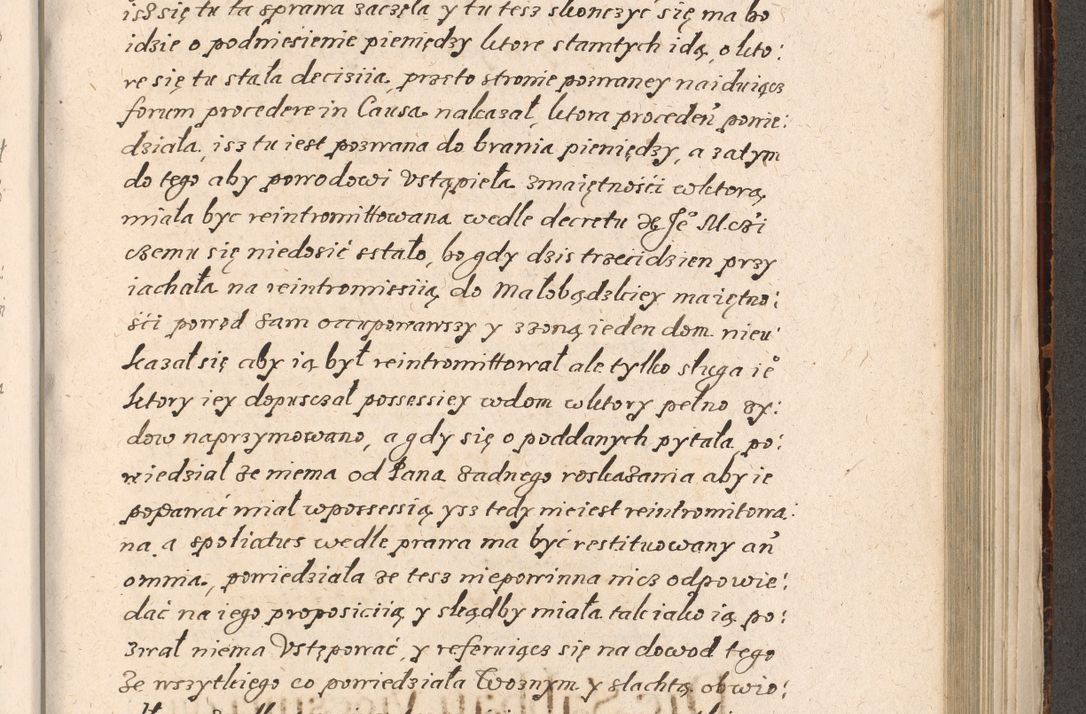 isz się tu ta sprawa zaczęła y tu tesz skonczyć się ma bo
idzie o podniesienie pieniędzy ktore stamtych idą, o kto:
re się tu stała decisiia, przeto stronie pozwaney naiduiącz
forum procedere in Causa nakazał, ktora proceden̄ powie:
działa, isz tu iest pozwana do brania pieniędzy, a zatym
do tego aby powodowi Vstąpieła zmaiętności wktorą,
miała byc reintromittowana wedle decretu Je° M.czi
czemu się niedosić sstało, bo gdy dzis trzeci dzien przy
iachała na reintromissiią do Małobądzkiey maiętno:
ści powod sam occupowawszy y zzoną ieden dom nieu
kazał się aby ią był reintromittował ale tylko sługa ie°
ktory iey dopusczał possessiey wdom wktory pełno zy:
dow naprzymowano, a gdy się o poddanych pytała, po:
wiedział ze niema od Pana zadnego roskazania aby ie
podawać miał wpossessią ysz tedy nieiest reintromitowa:
na a spoliatus wedle prawa ma być restituowany an̄
omnia, powiedziała ze tesz niepowinna nicz odpowie:
dać na iego proposiciią y skądby miała tak iako ią po:
zwał niema Vstępować, y referuiącz się na dowod tego
Ze wszytkiego co powiedziała Woznym y slachtą obwio: